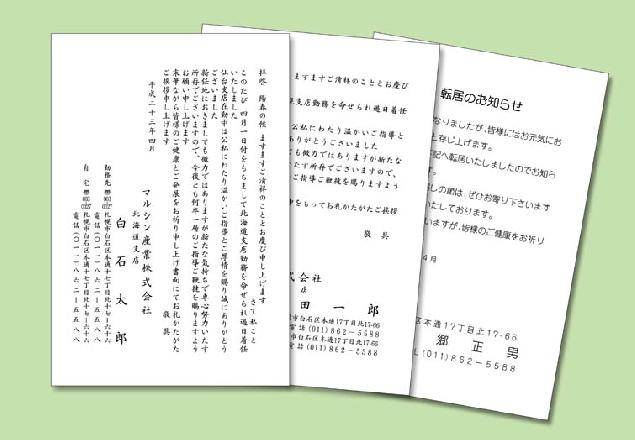 拝啓 陽春の候 ますますご清祥のこととお慶び申し上げます
さて 私こと
このたび 四月一日付をもちまして北海道支店勤務を命ぜられ過日着任
いたしました
仙台支店在勤中は公私にわたり温かいご指導とご厚情を賜り誠にありがとう
ございました
新任地におきましても微力ではありますが新たな気持ちで専心努力いたす
所存でございますので 今後とも何卒一層のご指導ご鞭撻を賜りますよう
お願い申し上げます
末筆ながら皆様のご健康とご発展をお祈り申し上げ書面にてお礼かたがた
ご挨拶申し上げます
敬具
平成二十二年四月
マルシン産業株式会社
北海道支店
白石太郎
勤務先
札幌市白石区本通十七丁目北十七-六十六
電話(〇一一)八六二-五五八八
自宅
札幌市白石区本通十七丁目北十七-六十六
電話(〇一一)八六二-五五八八
ますますご清祥のこととお慶び
支店勤務を命ぜられ過日着任
公私にわたり温かいご指導と
ありがとうございました
も微力ではありますが新たな
たす所存でございますので、
ご指導ご鞭撻を賜りますよう
をもってお礼かたがたご挨拶
敬具
式会社
田一郎
市白石区本通17丁目北17-66
電話(011)862-5588
市白石区本通17丁目北17-66
電話(011)862-5588
転居のお知らせ
なりましたが、皆様にはお元気にお
と存じ上げます。
記へ転居いたしましたのでお知ら
しの節は、ぜひお寄り下さいます
しております。
いますが、皆様のご健康をお祈り
4月
区本通17丁目北17-66
郷正男
(011)862-5588